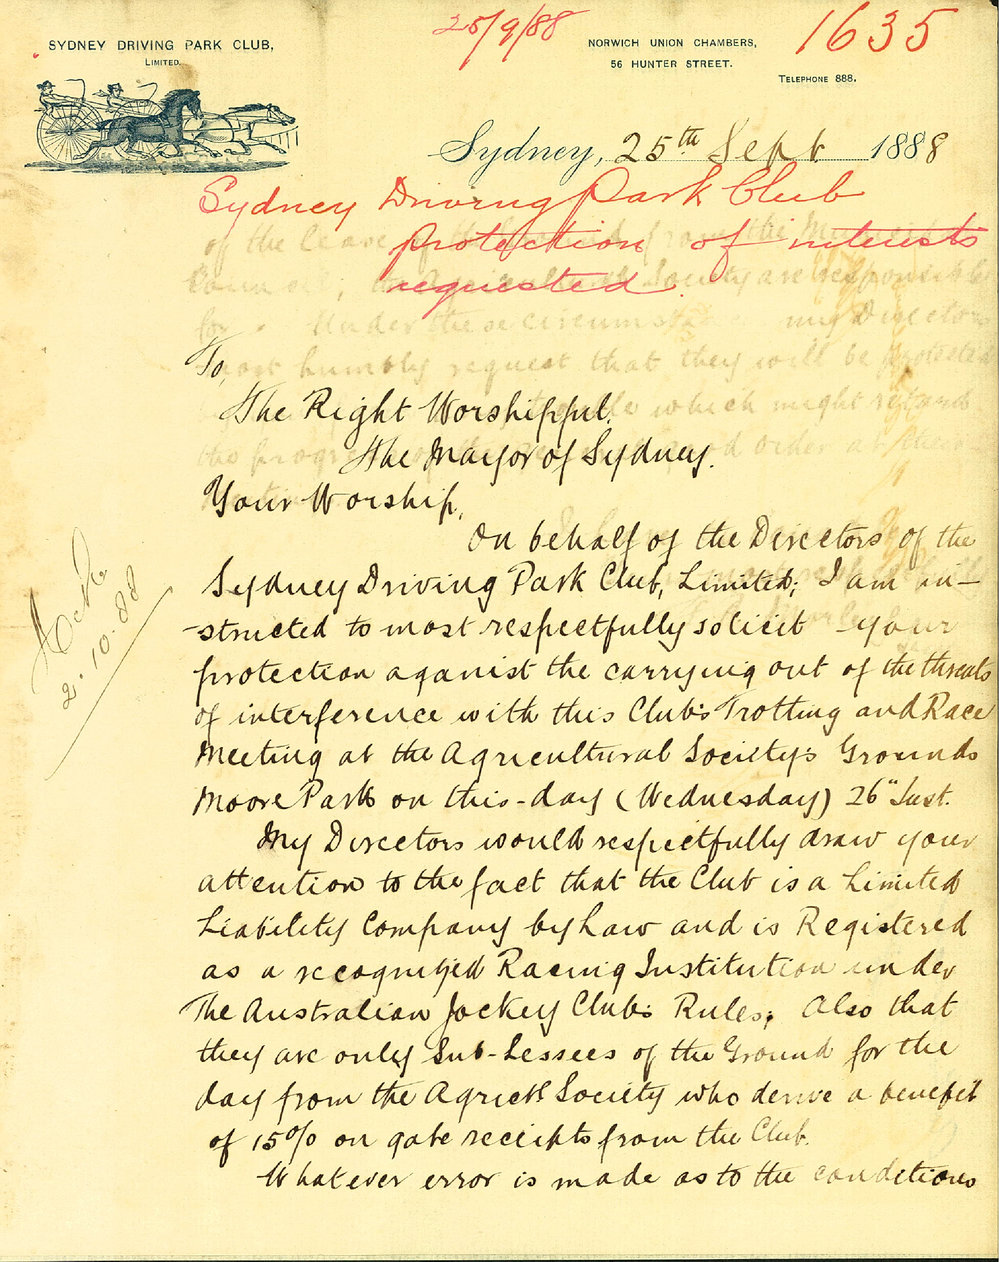 25/9/88
1635
SYDNEY DRIVING PARK CLUB,
LIMITED.
NORWICH UNION CHAMBERS,
56 HUNTER STREET.
TELEPHONE 888.
Sydney, 25th Sept 1888
Sydney Driving Park Club
protection of interests
requested.
To,
The Right Worshipful.
The Mayor of Sydney.
Your Worship,
On behalf of the Directors of the
Sydney Driving Park Club, Limited; I am in-
-structed to most respectfully solicit your
protection aganist the carrying out of the threats
of interference with this Club's Trotting and Race
Meeting at the Agricultural Society's Grounds
Moore Park on this-day (Wednesday) 26" Inst.
My Directors would respectfully draw your
attention to the fact that the Club is a Limited
Liability Company by Law and is Registered
as a recognized Racing Institution under
The Australian Jockey Club's Rules; Also that
they are only Sub-Lessees of the Ground for the
day from the Agricl Society who derive a benefit
of 15% on gate receipts from the Club.
Whatever error is made as to the conditions
2.10.88
of the lease from the
Council; the Agricultural Society are responsible
for. Under these circumstances my Directors
most humbly request that they will be protected
which might retard